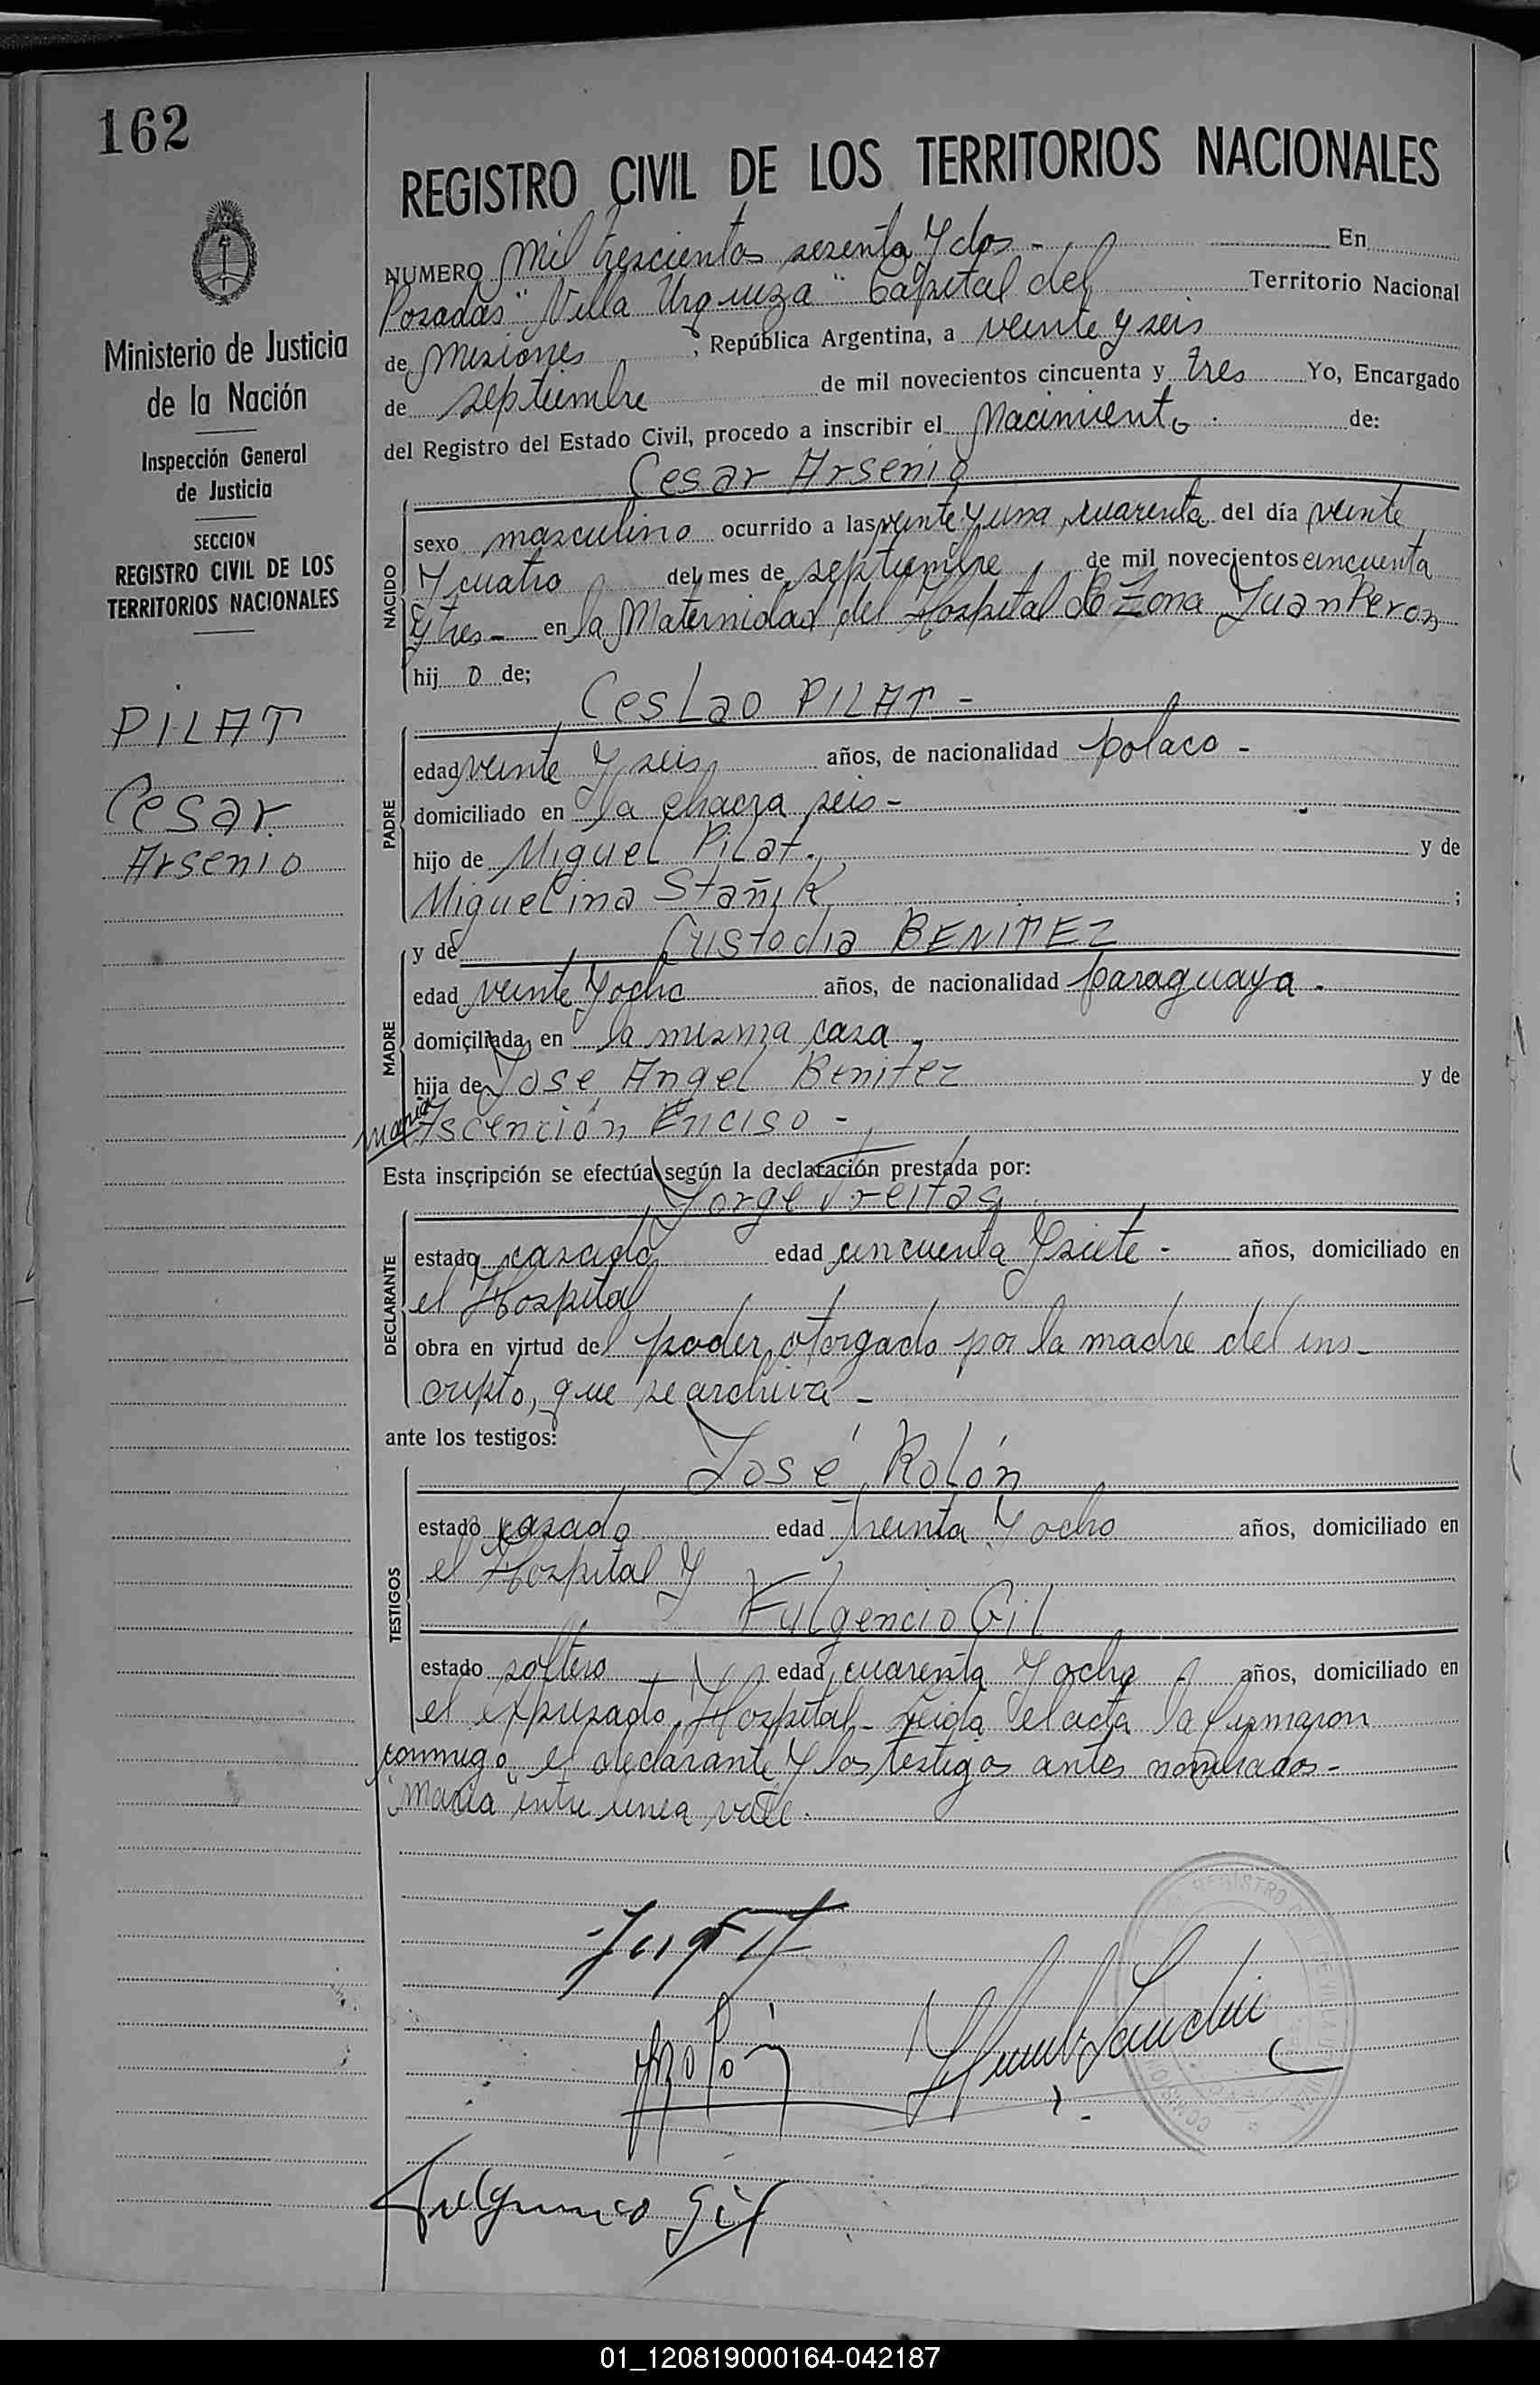 162
Ministerio de Justicia
de la Nación
Inspección General
de Justicia
SECCION
REGISTRO CIVIL DE LOS
TERRITORIOS NACIONALES
PILAT
Cesar
Arsenio
REGISTRO CIVIL DE LOS TERRITORIOS NACIONALES
NUMERO Mil trescientos sesenta y dos - En
Posadas "Villa Urquiza" Capital del Territorio Nacional
de Misiones, República Argentina, a veinte y seis
de septiembre de mil novecientos cincuenta y tres Yo, Encargado
del Registro del Estado Civil, procedo a inscribir el Nacimiento de:
Cesar Arsenio
NACIDO
sexo masculino ocurrido a las veinte y una, cuarenta del día veinte
y cuatro del mes de septiembre de mil novecientos cincuenta
y tres - en la Maternidad del Hospital de Zona Juan Peron
hij o de;
Ceslao PILAT -
PADRE
edad veinte y seis años, de nacionalidad polaco -
domiciliado en la chacra seis -
hijo de Miguel Pilat. y de
Miguelina Stañik ;
MADRE
y de Custodia BENITEZ
edad veinte y ocho años, de nacionalidad paraguaya -
domiciliada en la misma casa -
hija de Jose Angel Benitez y de
maria Ascención Enciso -
Esta inscripción se efectúa según la declaración prestada por:
Jorge Freitas
DECLARANTE
estado casado edad cincuenta y siete - años, domiciliado en
el Hospital
obra en virtud del poder otorgado por la madre del ins-
cripto, que se archiva -
ante los testigos:
José Rolón
TESTIGOS
estado casado edad treinta y ocho años, domiciliado en
el Hospital y
Fulgencio Gil
estado soltero edad cuarenta y ocho - años, domiciliado en
el expresado Hospital - Leida el acta la firmaron
conmigo el declarante y los testigos antes nombrados -
"Maria" entre linea vale.
Fulgencio Gil
REGISTRO
01_120819000164-042187